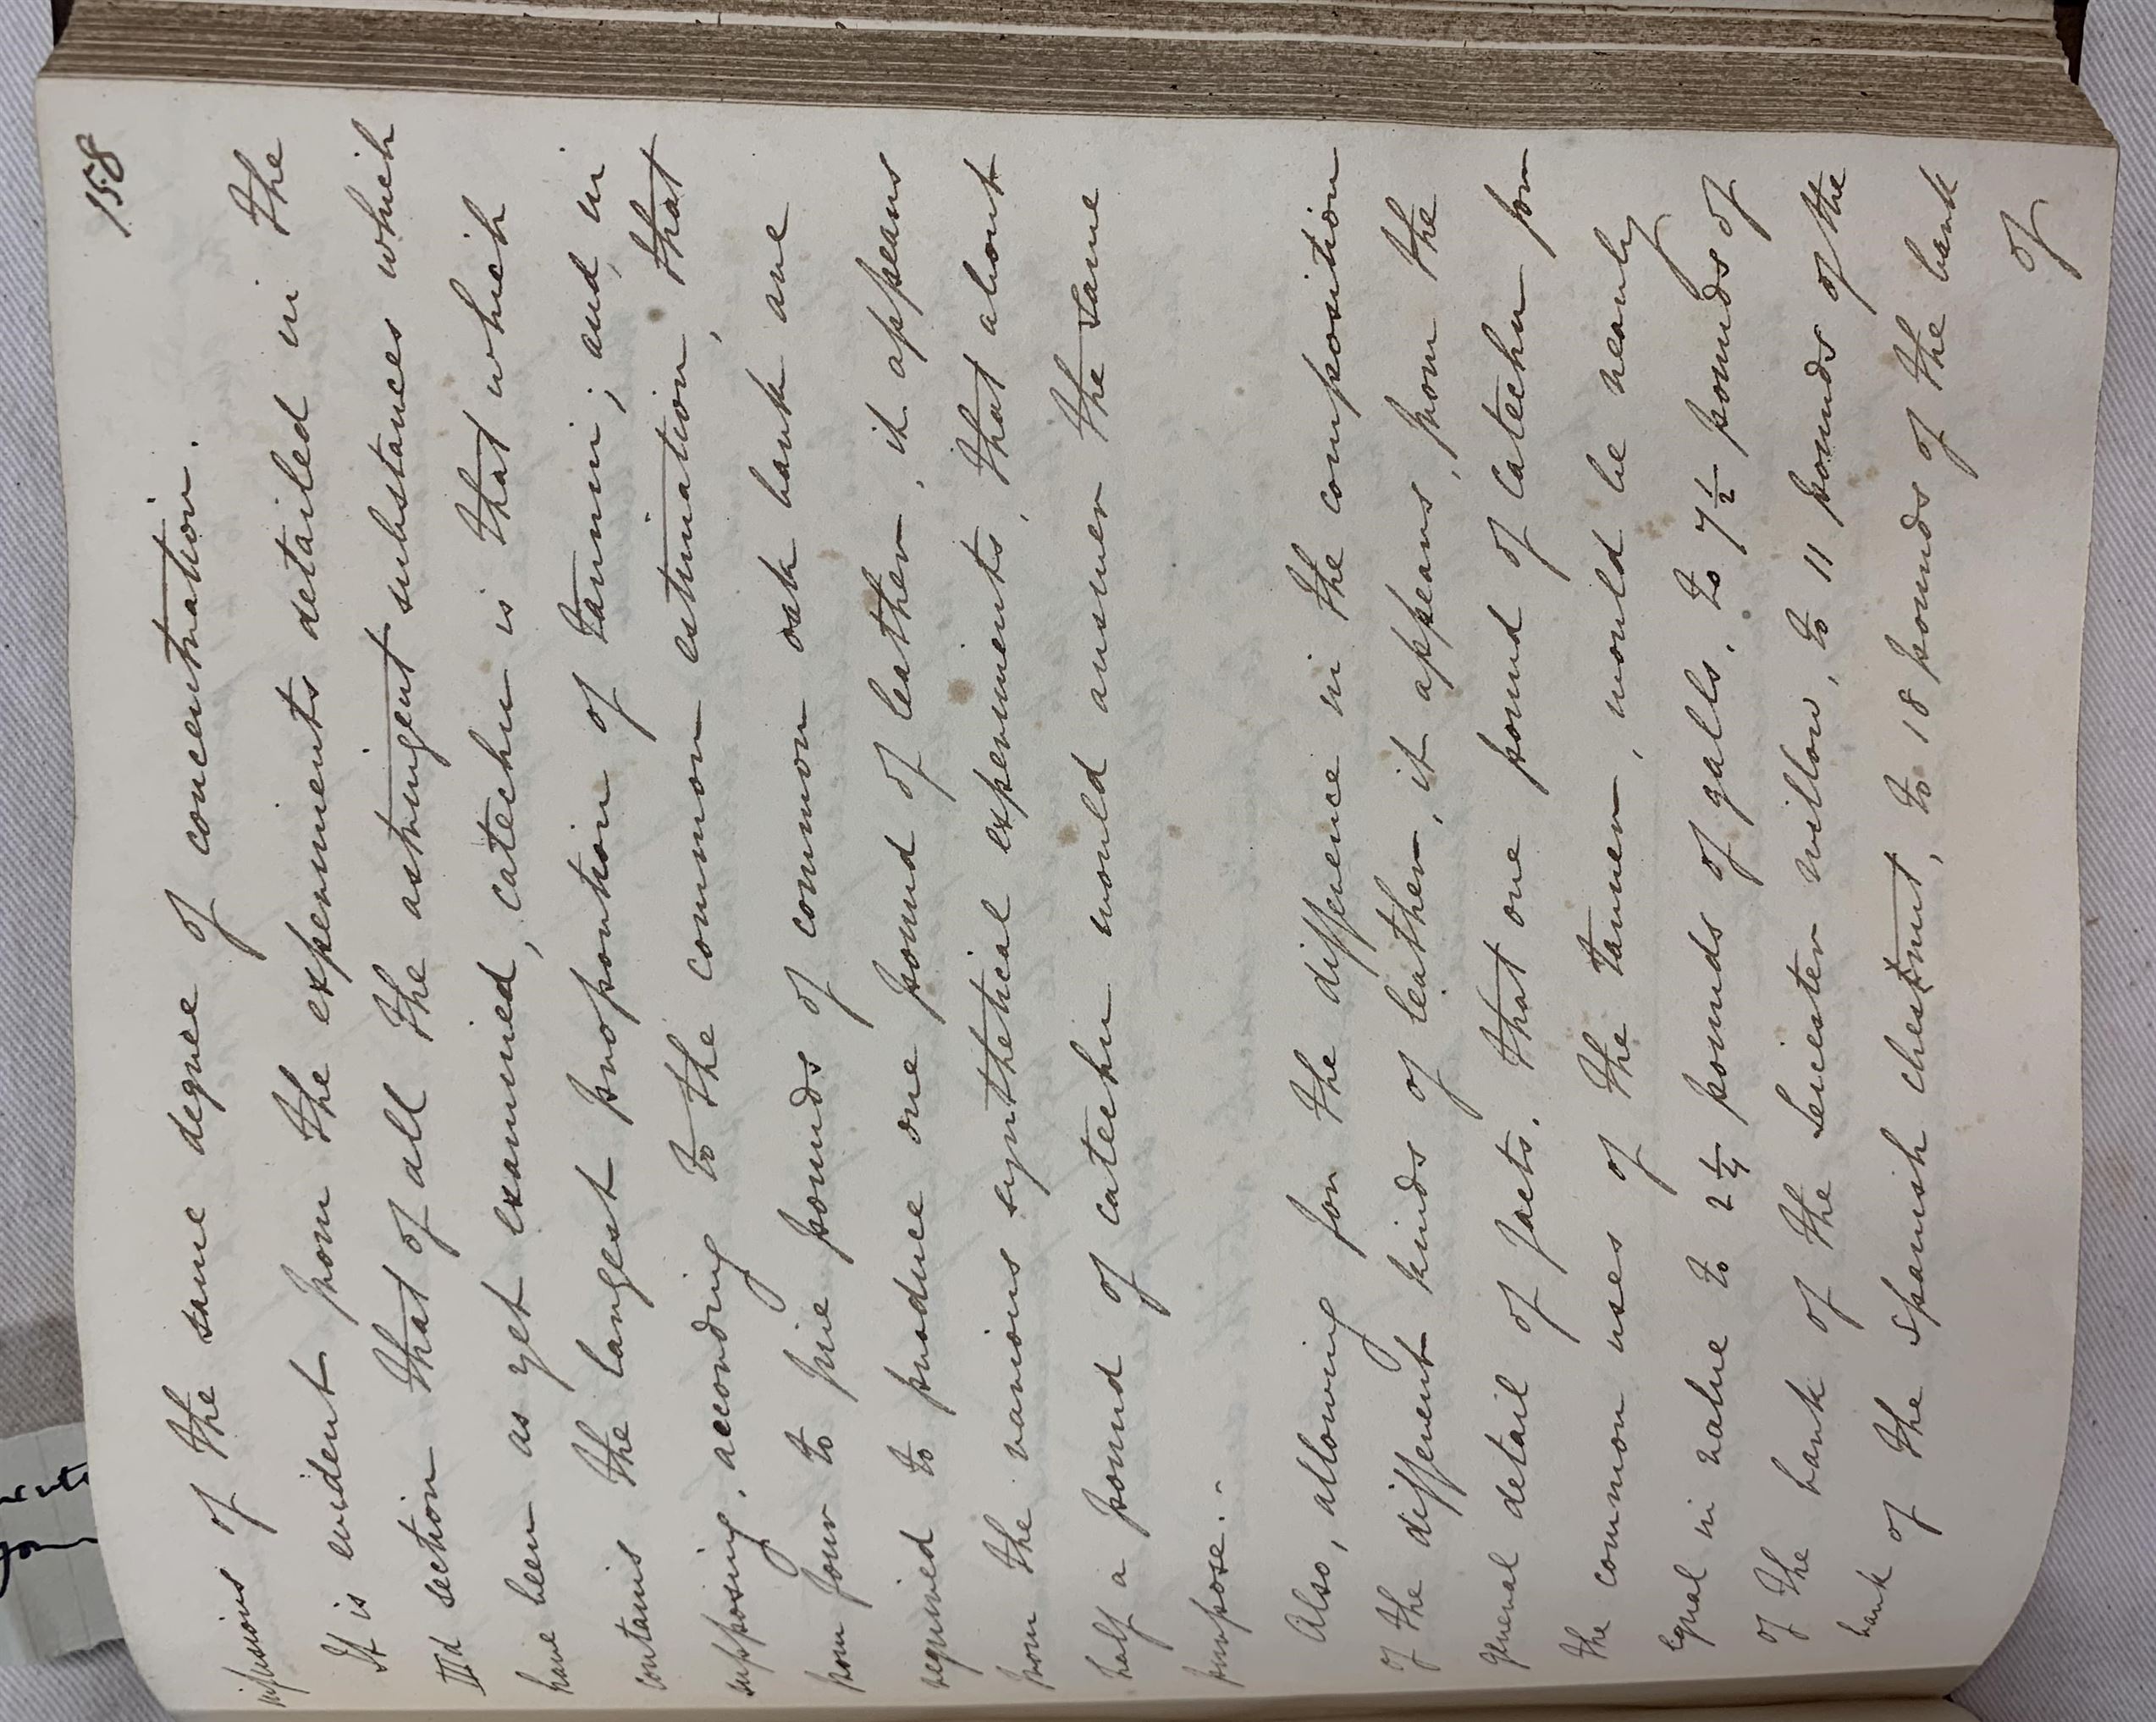 158
infusions of the same degree of concentration.
It is evident from the experiments detailed in the
IIId section that of all the astringent substances which
have been as yet examined, catechu is that which
contains the largest proportion of tannin; and in
supposing, according to the common estimation, that
from four to five pounds of common oak bark are
required to produce one pound of leather, it appears
from the various synthetical experiments, that about
half a pound of catechu would answer the same
purpose.-
Also, allowing for the difference in the composition
of the different kinds of leather, it appears, from the
general detail of facts, that one pound of catechu for
the common uses of the tanner, would be nearly
equal in value to 2 1/4 pounds of galls, to 7 1/2 pounds of
of the bark of the Leicester willow, to 11 pounds of the
bark of the Spanish chestnut, to 18 pounds of the bark
of